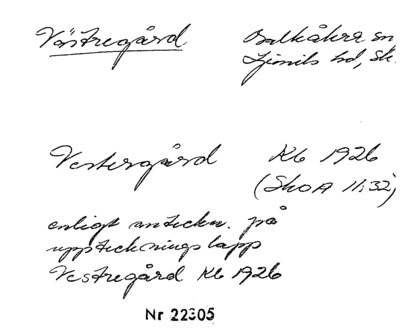 Västregård
Balkåkra sn
Ljunits hd, Sk.
Vestergård Kb 1926
(SkoA 11:32)
enligt anteckn. på
uppteckningslapp
Vestregård Kb 1926
Nr 22305